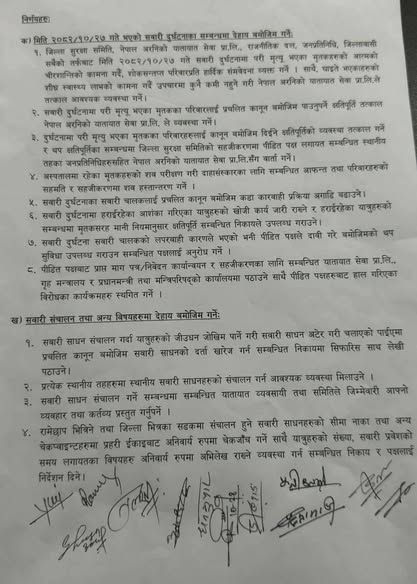 निर्णयहरुः
क) मिति २०८२/१०/२७ गते भएको सवारी दुर्घटनाका सम्बन्धमा देहाय बमोजिम गर्नेः
१. जिल्ला सुरक्षा समिति, नेपाल अरनिको यातायात सेवा प्रा.लि., राजनीतिक दल, जनप्रतिनिधि, जिल्लावासी
सबैको तर्फबाट मिति २०८२/१०/२७ गते सवारी दुर्घटनामा परी मृत्यु भएका मृतकहरुको आत्मको
चीरशान्तिको कामना गर्दै, शोकसन्तप्त परिवारप्रति हार्दिक संमवेदना व्यक्त गर्ने । साथै, घाइते भएकाहरुको
शीघ्र स्वास्थ्य लाभको कामना गर्दै उपचारमा कुनै कमी नहुने गरी नेपाल अरनिको यातायात सेवा प्रा.लि.ले
तत्काल आवश्यक व्यवस्था गर्ने।
२. सवारी दुर्घटनामा परी मृत्यु भएका मृतकका परिवारलाई प्रचलित कानून बमोजिम पाउनुपर्ने क्षतिपूर्ति तत्काल
नेपाल अरनिको यातायात सेवा प्रा.लि. ले व्यवस्था गर्ने।
३. दुर्घटनामा परी मृत्यु भएका मृतकका परिवारहरुलाई कानून बमोजिम दिईने क्षतिपूर्तिको व्यवस्था तत्काल गर्ने
र थप क्षतिपूर्तिका सम्बन्धमा जिल्ला सुरक्षा समितिको सहजीकरणमा पीडित पक्ष लगायत सम्बन्धित स्थानीय
तहका जनप्रतिनिधिहरुसहित नेपाल अरनिको यातायात सेवा प्रा.लि.सँग वार्ता गर्ने।
४. अस्पतालमा रहेका मृतकहरुको शव परीक्षण गरी दाहासंस्कारका लागि सम्बन्धित आफन्त तथा परिवारहरुको
सहमति र सहजीकरणमा शव हस्तान्तरण गर्ने ।
५. सवारी दुर्घटनाका सवारी चालकलाई प्रचलित कानून बमोजिम कडा कारवाही प्रक्रिया अगाडि बढाउने।
६. सवारी दुर्घटनामा हराईरहेका आशंका गरिएका यात्रुहरुको खोजी कार्य जारी राख्ने र हराईरहेका यात्रुहरुको
सम्बन्धमा मृतकसरह मानी नियमानुसार क्षतिपूर्ति सम्बन्धित निकायले उपलब्ध गराउने।
७. सवारी दुर्घटना सवारी चालकको लापरवाही कारणले भएको भनी पीडित पक्षले दावी गरे बमोजिमको थप
सुविधा उपलब्ध गराउन सम्बन्धित पक्षलाई अनुरोध गर्ने ।
८. पीडित पक्षबाट प्राप्त माग पत्र/निवेदन कार्यान्वयन र सहजीकरणका लागि सम्बन्धित यातायात सेवा प्रा.लि.,
गृह मन्त्रालय र प्रधानमन्त्री तथा मन्त्रिपरिषद्को कार्यालयमा पठाउने साथै पीडित पक्षहरुबाट हाल गरिएका
विरोधका कार्यक्रमहरु स्थगित गर्ने ।
ख) सवारी संचालन तथा अन्य विषयहरुमा देहाय बमोजिम गर्नेः
१. सवारी साधन संचालन गर्दा यात्रुहरुको जीउधन जोखिम पार्ने गरी सवारी साधन अटेर गरी चलाएको पाईएमा
प्रचलित कानून बमोजिम सवारी साधनको दर्ता खारेज गर्न सम्बन्धित निकायमा सिफारिस साथ लेखी
पठाउने।
२. प्रत्येक स्थानीय तहहरुमा स्थानीय सवारी साधनहरुको संचालन गर्न आवश्यक व्यवस्था मिलाउने ।
३. सवारी साधन संचालन गर्ने सम्बन्धमा सम्बन्धित यातायात व्यवसायी तथा समितिले जिम्मेवारी आफ्नो
व्यवहार तथा कर्तव्य प्रस्तुत गर्नुपर्ने ।
४. रामेछाप भित्रिने तथा जिल्ला भित्रका सडकमा संचालन हुने सवारी साधनहरुको सीमा नाका तथा अन्य
चेकप्वाइन्टहरुमा प्रहरी ईकाइबाट अनिवार्य रुपमा चेकजाँच गर्ने साथै यात्रुहरुको संख्या, सवारी प्रवेशको
समय लगायतका विषयहरु अनिवार्य रुपमा अभिलेख राख्ने व्यवस्था गर्न सम्बन्धित निकाय र पक्षलाई
निर्देशन दिने।